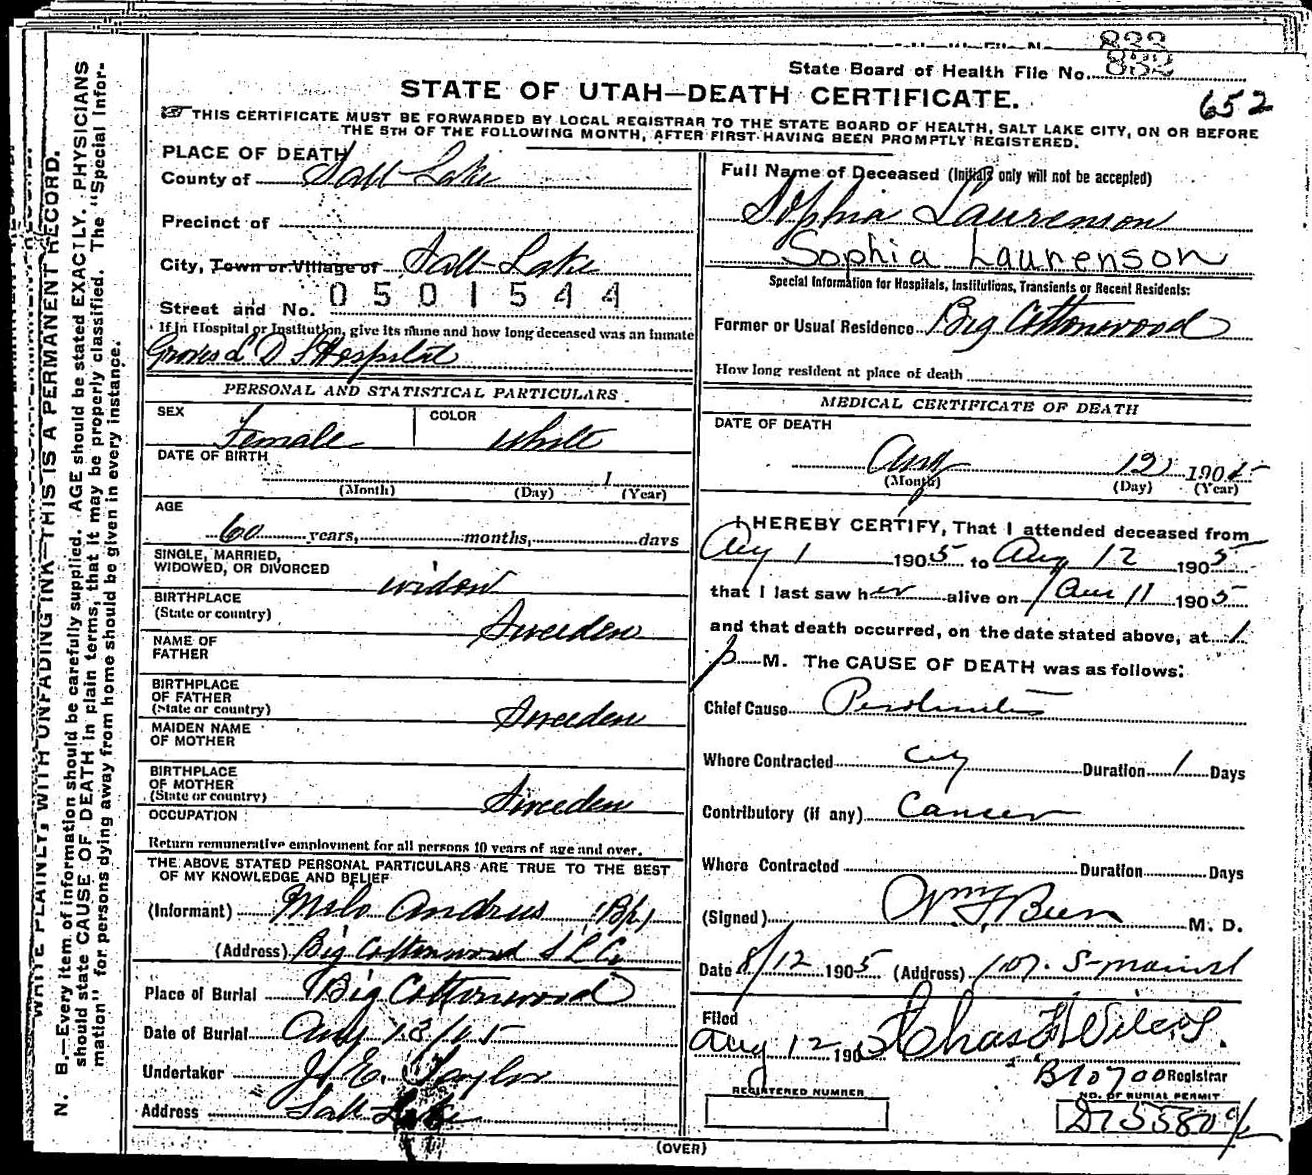 833
State Board of Health File No. 832
STATE OF UTAH—DEATH CERTIFICATE.
652
THIS CERTIFICATE MUST BE FORWARDED BY LOCAL REGISTRAR TO THE STATE BOARD OF HEALTH, SALT LAKE CITY, ON OR BEFORE
THE 5TH OF THE FOLLOWING MONTH, AFTER FIRST HAVING BEEN PROMPTLY REGISTERED.
WRITE PLAINLY, WITH UNFADING INK—THIS IS A PERMANENT RECORD.
N. B.—Every item of information should be carefully supplied. AGE should be stated EXACTLY. PHYSICIANS
should state CAUSE OF DEATH in plain terms, that it may be properly classified. The "Special Infor-
mation" for persons dying away from home should be given in every instance.
PLACE OF DEATH
County of Salt Lake
Precinct of
City, Town or Village of Salt Lake
Street and No. 0501544
If in Hospital or Institution, give its name and how long deceased was an inmate
Groves L D S Hospital
PERSONAL AND STATISTICAL PARTICULARS
SEX Female COLOR White
DATE OF BIRTH
1
(Month) (Day) (Year)
AGE
60 years, months, days
SINGLE, MARRIED,
WIDOWED, OR DIVORCED widow
BIRTHPLACE
(State or country) Sweeden
NAME OF
FATHER
BIRTHPLACE
OF FATHER
(State or country) Sweeden
MAIDEN NAME
OF MOTHER
BIRTHPLACE
OF MOTHER
(State or country) Sweeden
OCCUPATION
Return remunerative employment for all persons 10 years of age and over.
THE ABOVE STATED PERSONAL PARTICULARS ARE TRUE TO THE BEST
OF MY KNOWLEDGE AND BELIEF
(Informant) Milo Andrus (Bp)
(Address) Big Cottonwood S L Co
Place of Burial Big Cottonwood
Date of Burial Aug 13/05
Undertaker J. E. Taylor
Address Salt Lake
Full Name of Deceased (Initials only will not be accepted)
Sophia Laurenson
Sophia Laurenson
Special Information for Hospitals, Institutions, Transients or Recent Residents:
Former or Usual Residence Big Cottonwood
How long resident at place of death
MEDICAL CERTIFICATE OF DEATH
DATE OF DEATH
Aug 12 1905
(Month) (Day) (Year)
I HEREBY CERTIFY, That I attended deceased from
Aug 1 1905 to Aug 12 1905
that I last saw her alive on Aug 11 1905
and that death occurred, on the date stated above, at 1
p M. The CAUSE OF DEATH was as follows:
Chief Cause Peritonitis
Where Contracted city Duration 1 Days
Contributory (if any) Cancer
Where Contracted Duration Days
(Signed) Wm F Beer M. D.
Date 8/12 1905 (Address) 107 S-main st
Filed
Aug 12 1905 Chas
B10700 Registrar
REGISTERED NUMBER
NO. OF BURIAL PERMIT
D75580
(OVER)